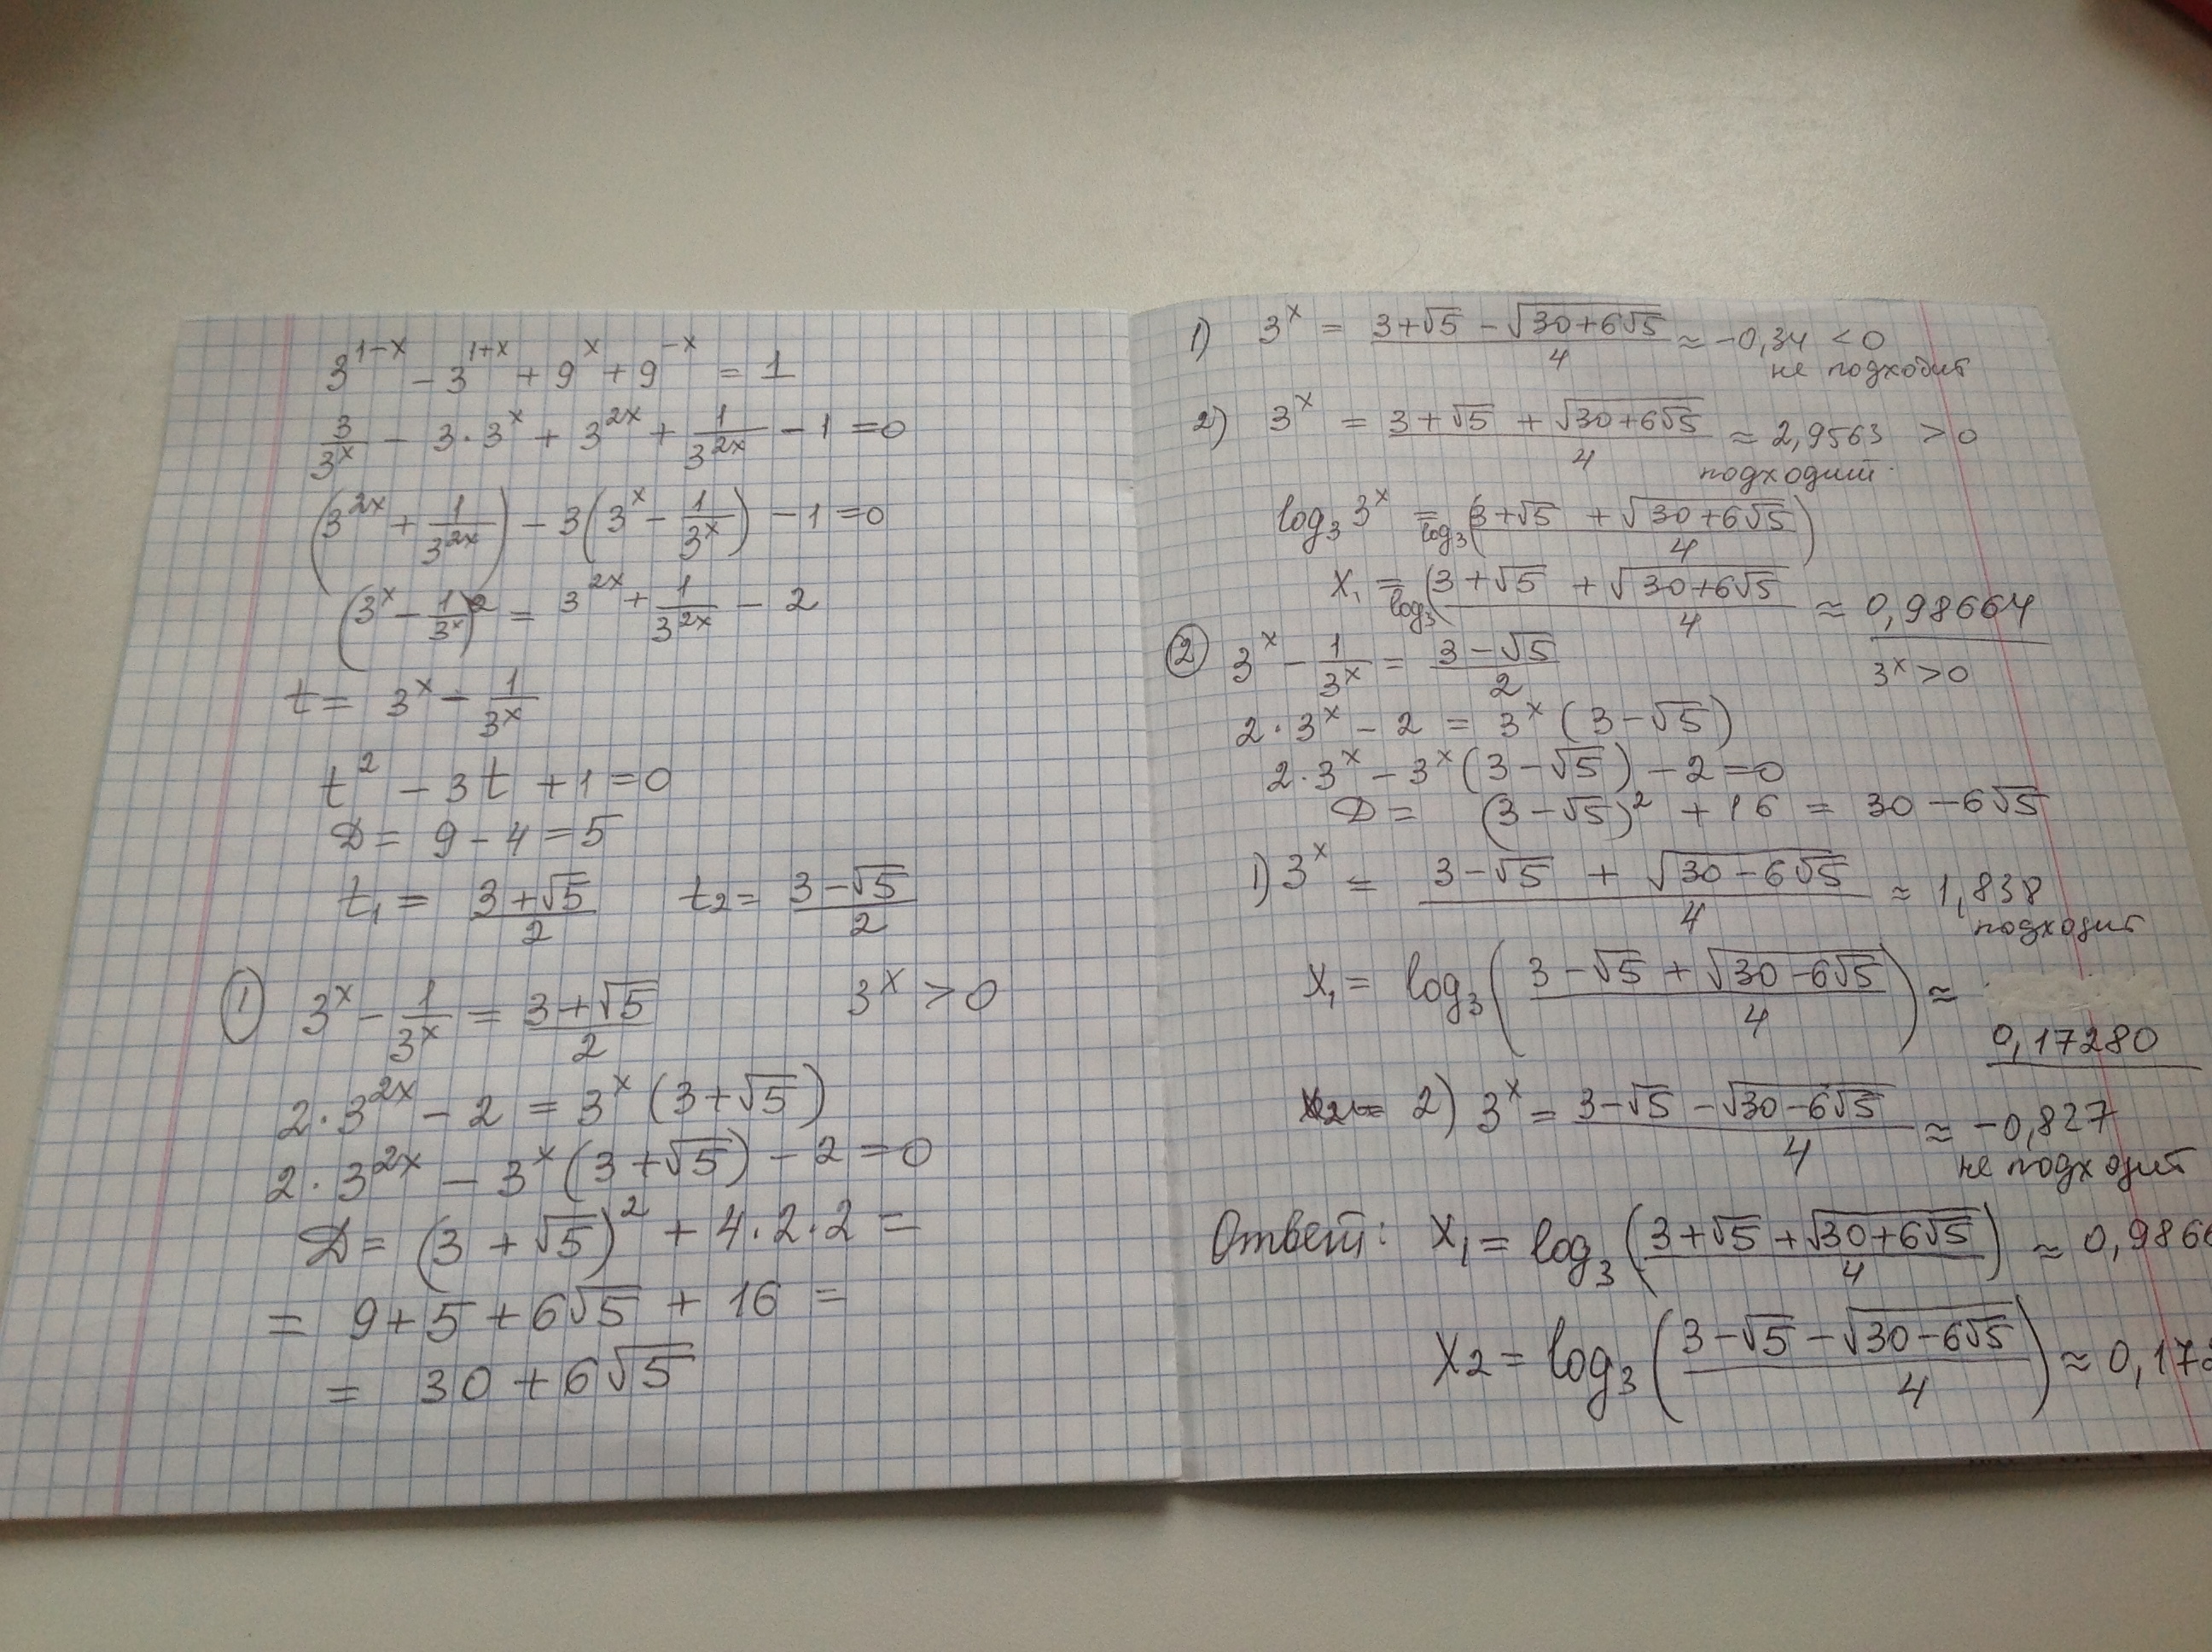 3^{1-x} - 3^{1+x} + 9^x + 9^{-x} = 1
3/3^x - 3·3^x + 3^{2x} + 1/3^{2x} - 1 = 0
(3^{2x} + 1/3^{2x}) - 3(3^x - 1/3^x) - 1 = 0
(3^x - 1/3^x)^2 = 3^{2x} + 1/3^{2x} - 2
t = 3^x - 1/3^x
t^2 - 3t + 1 = 0
D = 9 - 4 = 5
t₁ = (3+√5)/2   t₂ = (3-√5)/2
① 3^x - 1/3^x = (3+√5)/2   3^x > 0
2·3^{2x} - 2 = 3^x (3+√5)
2·3^{2x} - 3^x (3+√5) - 2 = 0
D = (3+√5)^2 + 4·2·2 =
= 9+5+6√5 + 16 =
= 30+6√5
1) 3^x = (3+√5 - √(30+6√5))/4 ≈ -0,34 < 0
не подходит
2) 3^x = (3+√5 + √(30+6√5))/4 ≈ 2,9563 > 0
подходит.
log₃ 3^x = log₃ ((3+√5 + √(30+6√5))/4)
x₁ = log₃ ((3+√5 + √(30+6√5))/4) ≈ 0,98664
② 3^x - 1/3^x = (3-√5)/2   3^x > 0
2·3^x - 2 = 3^x (3-√5)
2·3^x - 3^x (3-√5) - 2 = 0
D = (3-√5)^2 + 16 = 30 - 6√5
1) 3^x = (3-√5 + √(30-6√5))/4 ≈ 1,838
подходит
x₁ = log₃ ((3-√5 + √(30-6√5))/4) ≈
0,17280
2) 3^x = (3-√5 - √(30-6√5))/4 ≈ -0,827
не подходит
Ответ: x₁ = log₃ ((3+√5 + √(30+6√5))/4) ≈ 0,986
x₂ = log₃ ((3-√5 - √(30-6√5))/4) ≈ 0,172